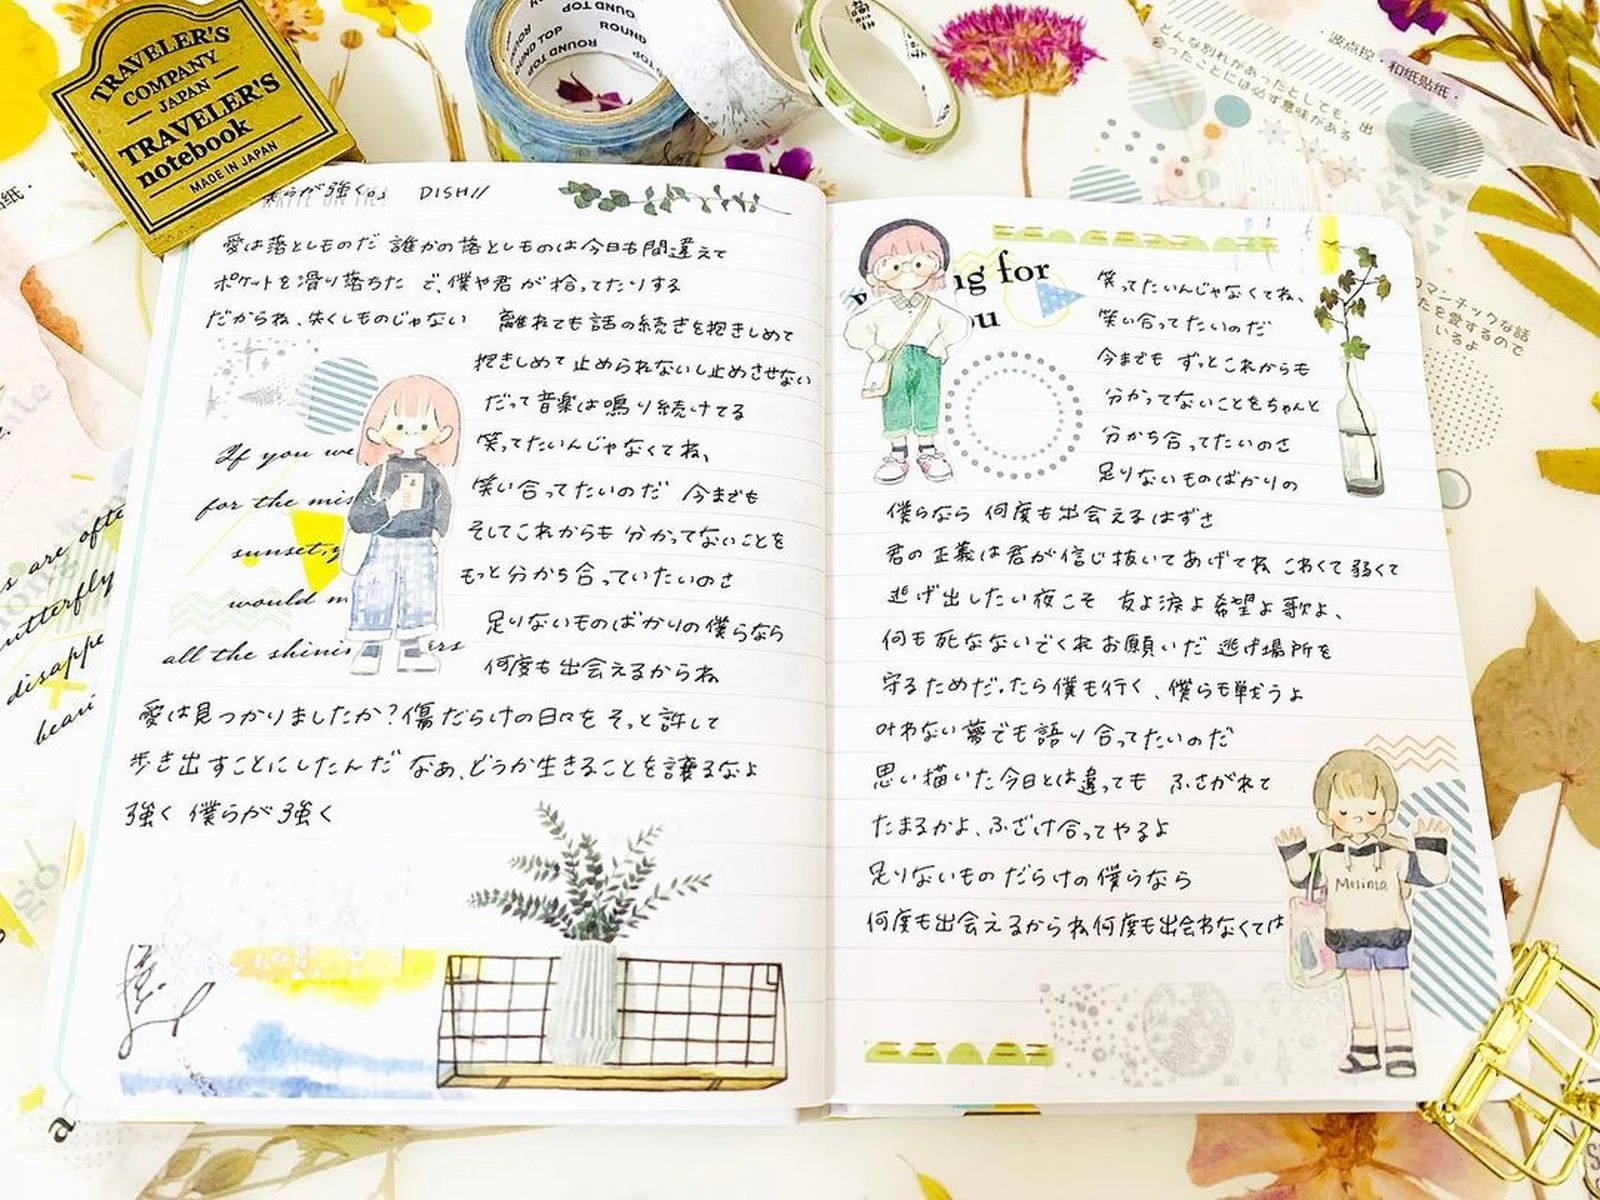 TRAVELER'S
COMPANY
JAPAN
TRAVELER'S
notebook
MADE IN JAPAN
ROUND TOP
ROUND TOP
僕らが強く。 DISH//
愛は落としものだ 誰かの落としものは今日も間違えて
ポケットを滑り落ちた で、僕や君が拾ってたりする
だからね、失くしものじゃない 離れても話の続きを抱きしめて
抱きしめて 止められないし止めさせない
だって音楽は鳴り続けてる
笑ってたいんじゃなくてね、
笑い合ってたいのだ 今までも
そしてこれからも 分かってないことを
もっと分かち合っていたいのさ
足りないものばかりの僕らなら
何度も出会えるからね
愛は見つかりましたか?傷だらけの日々を そっと許して
歩き出すことにしたんだ なあ、どうか生きることを譲るなよ
強く 僕らが強く
If you we
for the mis
sunset, y
would m
all the shinin
ers
ng for
ou
笑ってたいんじゃなくてね、
笑い合ってたいのだ
今までも ずっとこれからも
分かってないことをちゃんと
分かち合ってたいのさ
足りないものばかりの
僕らなら 何度も出会えるはずさ
君の正義は君が信じ抜いてあげてね こわくて弱くて
逃げ出したい夜こそ 友よ涙よ希望よ歌よ、
何も死なないでくれお願いだ 逃げ場所を
守るためだったら僕も行く、僕らも戦うよ
叶わない夢でも語り合ってたいのだ
思い描いた今日とは違っても ふさがれて
たまるかよ、ふざけ合ってやるよ
足りないものだらけの僕らなら
何度も出会えるからね何度も出会わなくては
Molinta
・波点控・和紙貼紙・
どんな別れがあったとしても、出
合ったことには必ず意味がある
マンチックな話
たを愛するので
いるよ
s are ofte
utterfly
disappe
beari